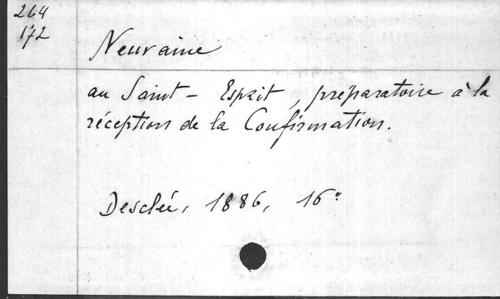 264
172
Neuvaine
au Saint - Esprit, préparatoire à la
réception de la Confirmation.
Desclée, 1886, 16°